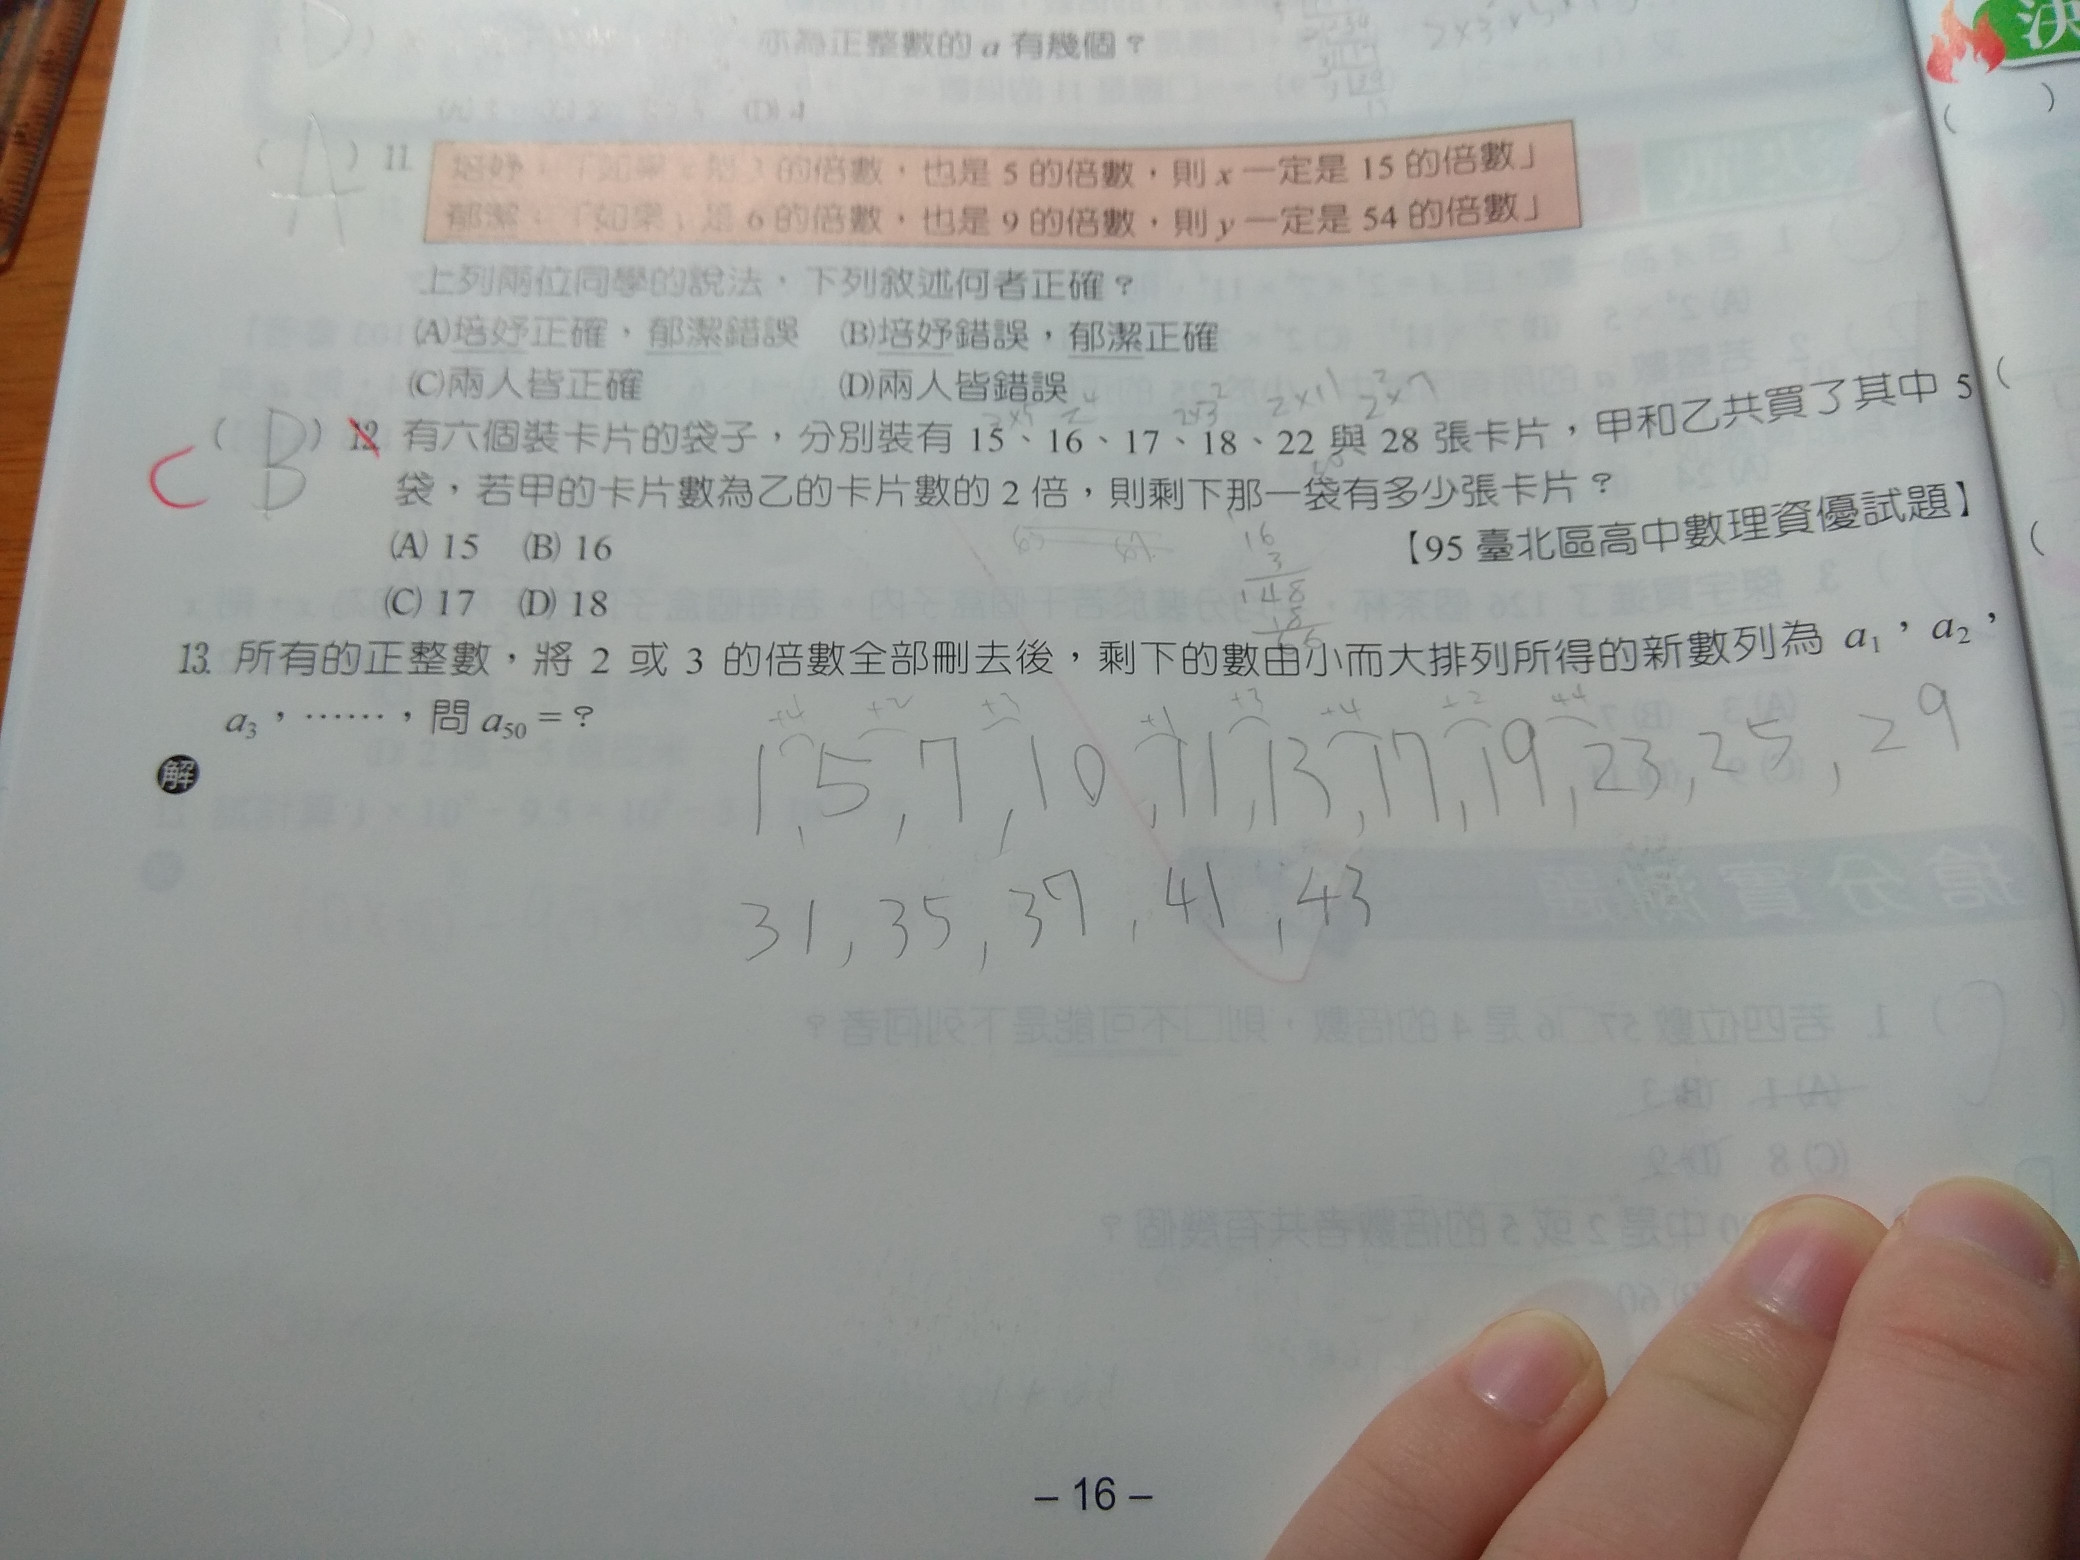 亦為正整數的 a 有幾個？
決
(D) 4
( A ) 11
的倍數，也是 5 的倍數，則 x 一定是 15 的倍數」
郁潔：「如果 y 是 6 的倍數，也是 9 的倍數，則 y 一定是 54 的倍數」
上列兩位同學的說法，下列敘述何者正確？
(A)培妤正確，郁潔錯誤 (B)培妤錯誤，郁潔正確
(C)兩人皆正確 (D)兩人皆錯誤
2×3² 2×11 2²×7
( B ) 12. 有六個裝卡片的袋子，分別裝有 15、16、17、18、22 與 28 張卡片，甲和乙共買了其中 5
C
袋，若甲的卡片數為乙的卡片數的 2 倍，則剩下那一袋有多少張卡片？
(A) 15 (B) 16
【95 臺北區高中數理資優試題】
(C) 17 (D) 18
16
3
148
18
66
13. 所有的正整數，將 2 或 3 的倍數全部刪去後，剩下的數由小而大排列所得的新數列為 a₁，a₂，
a₃，……，問 a₅₀ = ？
+4 +2 +3 +1 +3 +4 +2 +4
解
1,5,7,10,11,13,17,19,23,25,29
31,35,37,41,43
– 16 –